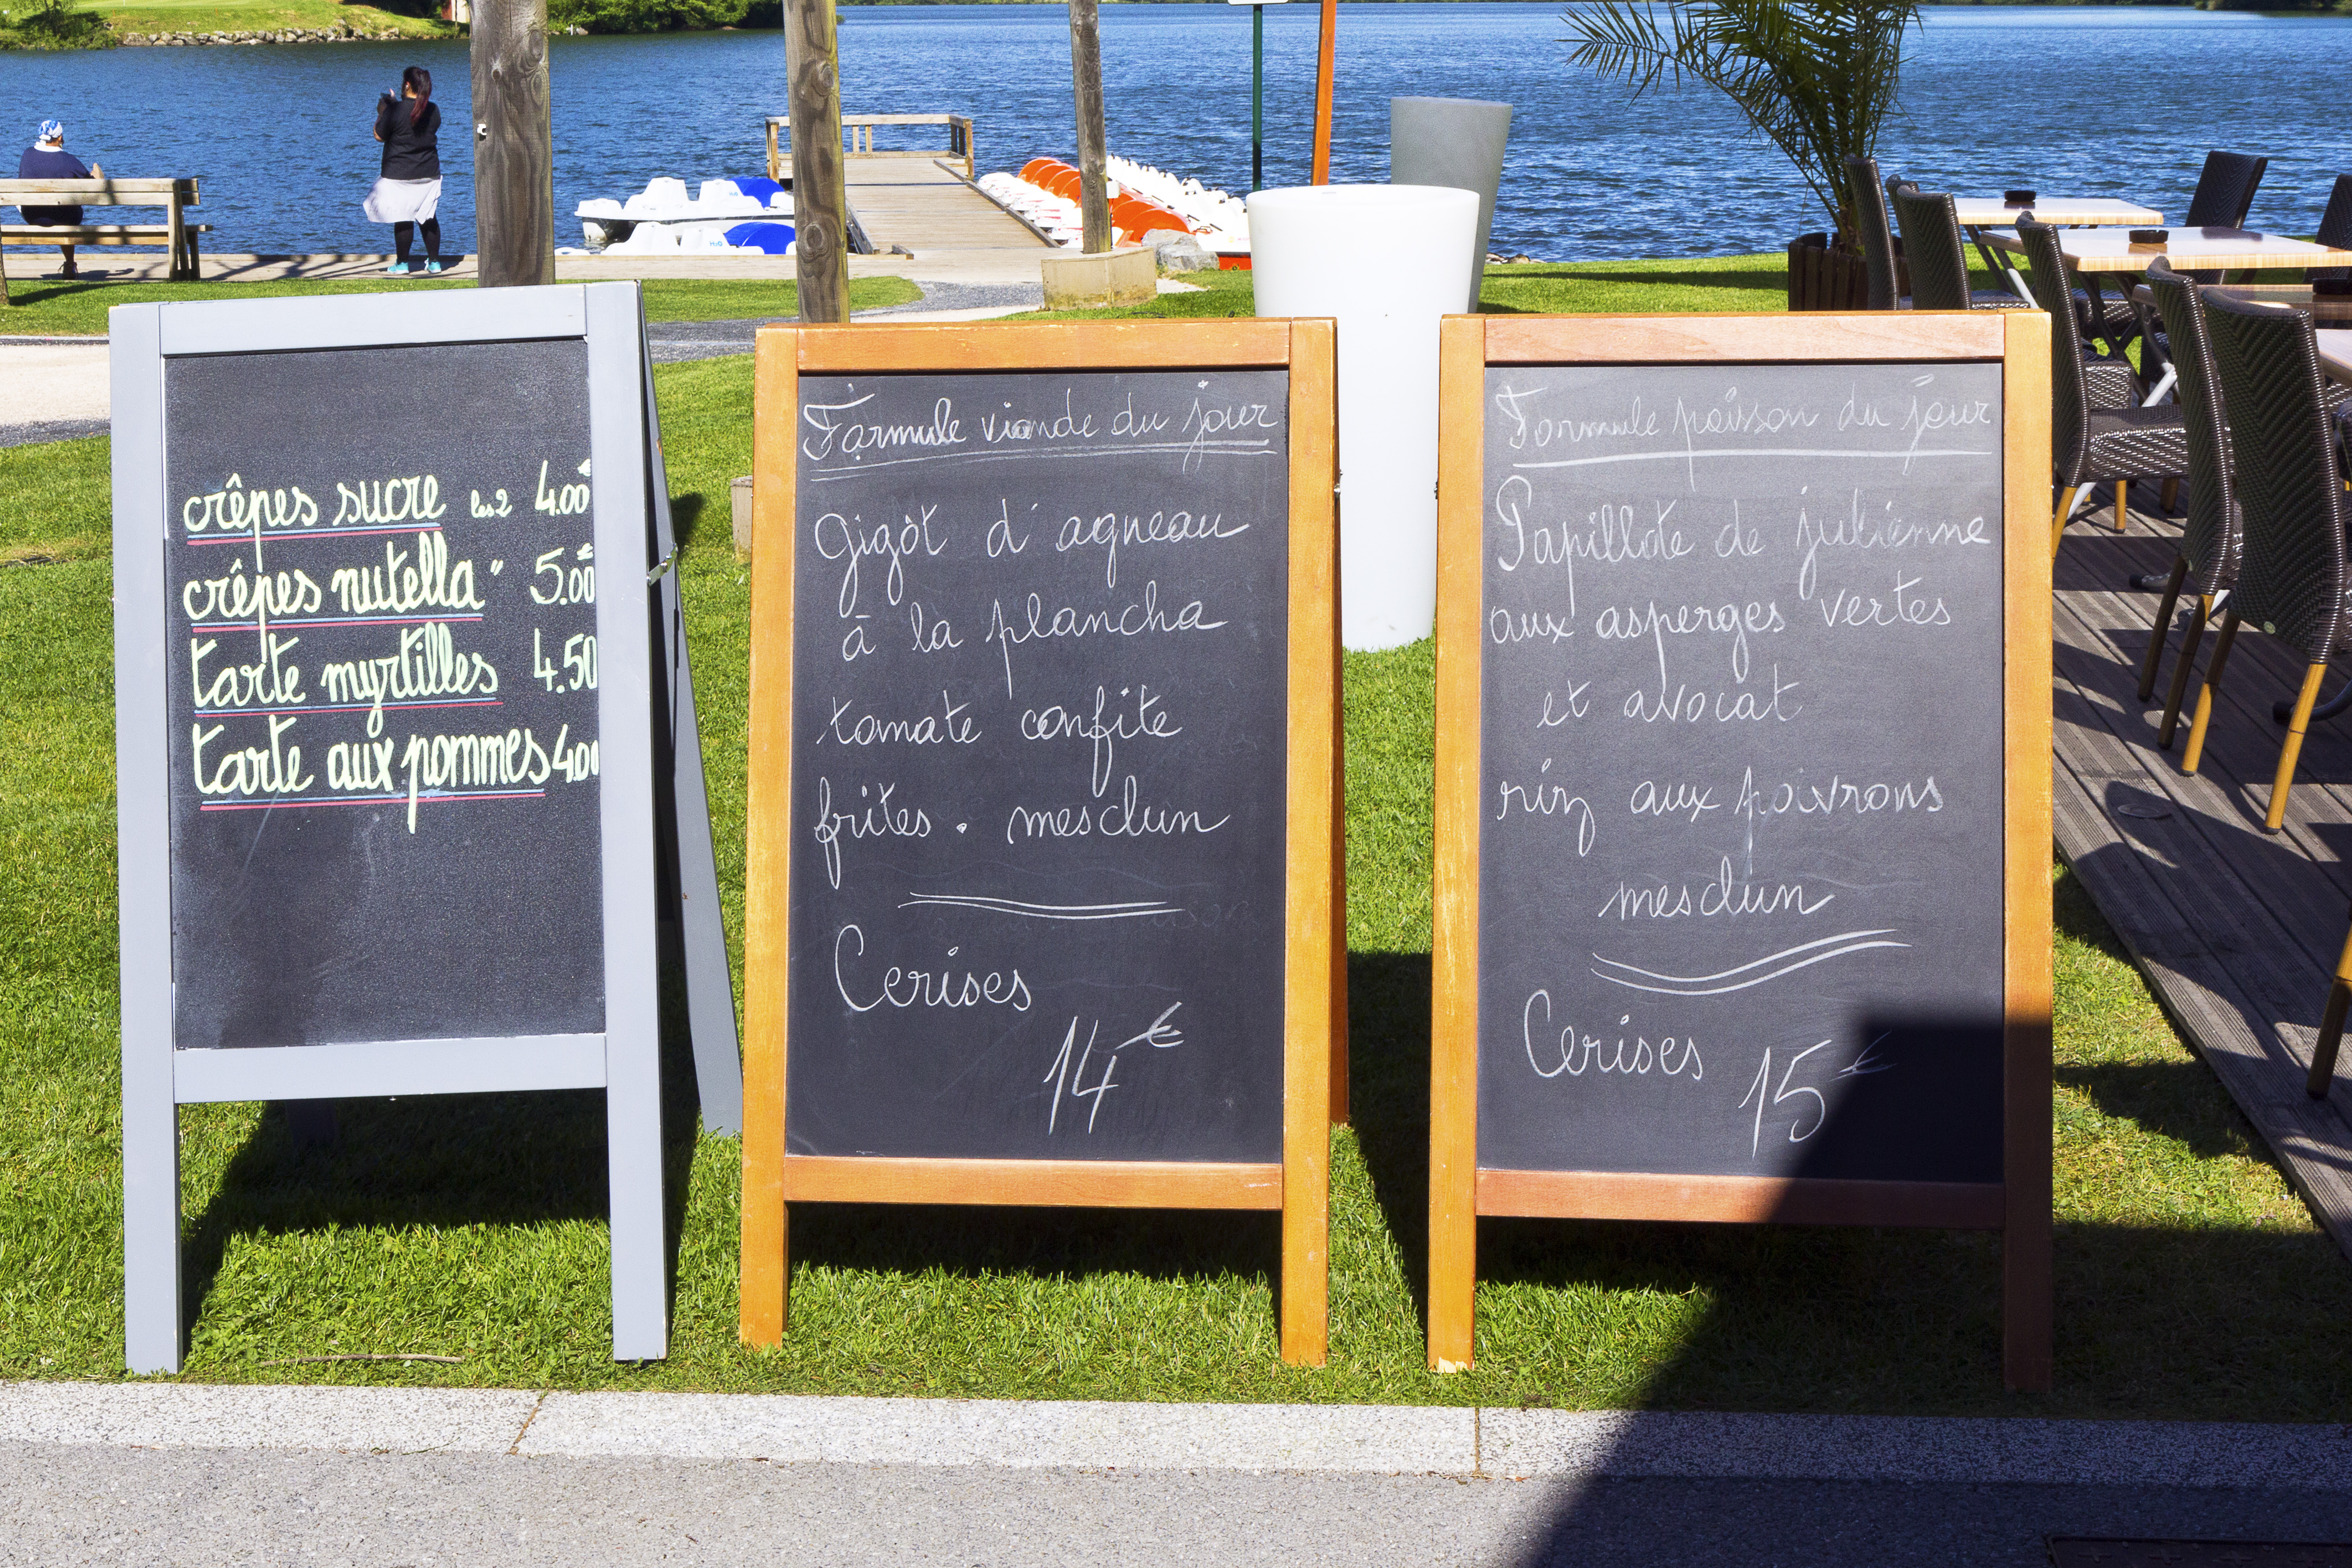 crêpes sucre les 2 4.00€
crêpes nutella " 5.00€
tarte myrtilles 4.50
tarte aux pommes 4.00
Formule viande du jour
Gigôt d'agneau
à la plancha
tomate confite
frites. mesclun
Cerises
14€
Formule poisson du jour
Papillote de julienne
aux asperges vertes
et avocat
riz aux poivrons
mesclun
Cerises
15€
H2O